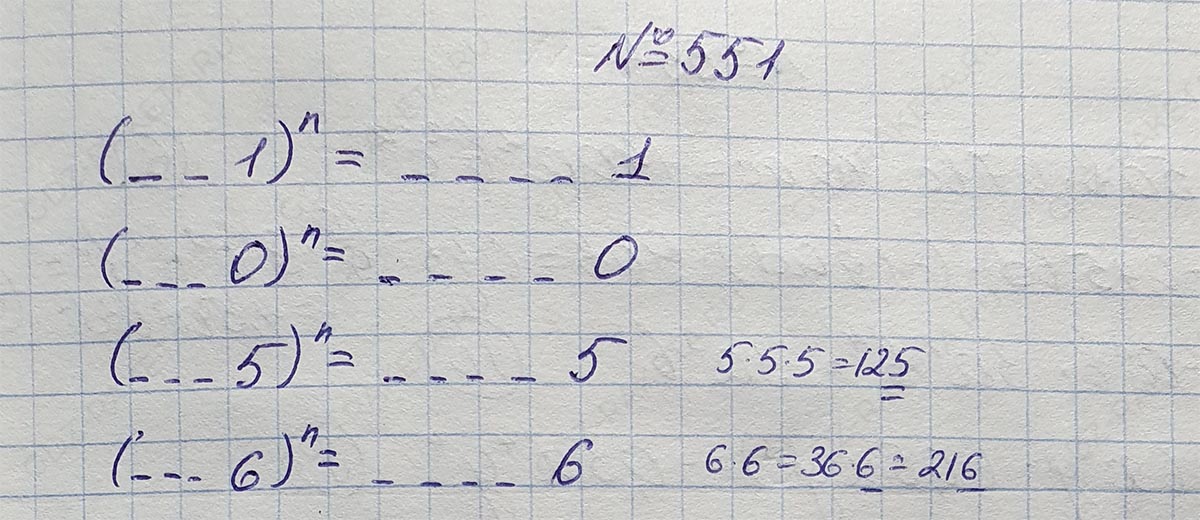 № 551
(_ _ 1)ⁿ = _ _ _ _ 1
(_ _ _ 0)ⁿ = _ _ _ _ 0
(_ _ _ 5)ⁿ = _ _ _ _ 5 5·5·5 = 125
(_ _ _ 6)ⁿ = _ _ _ _ 6 6·6 = 36·6 = 216